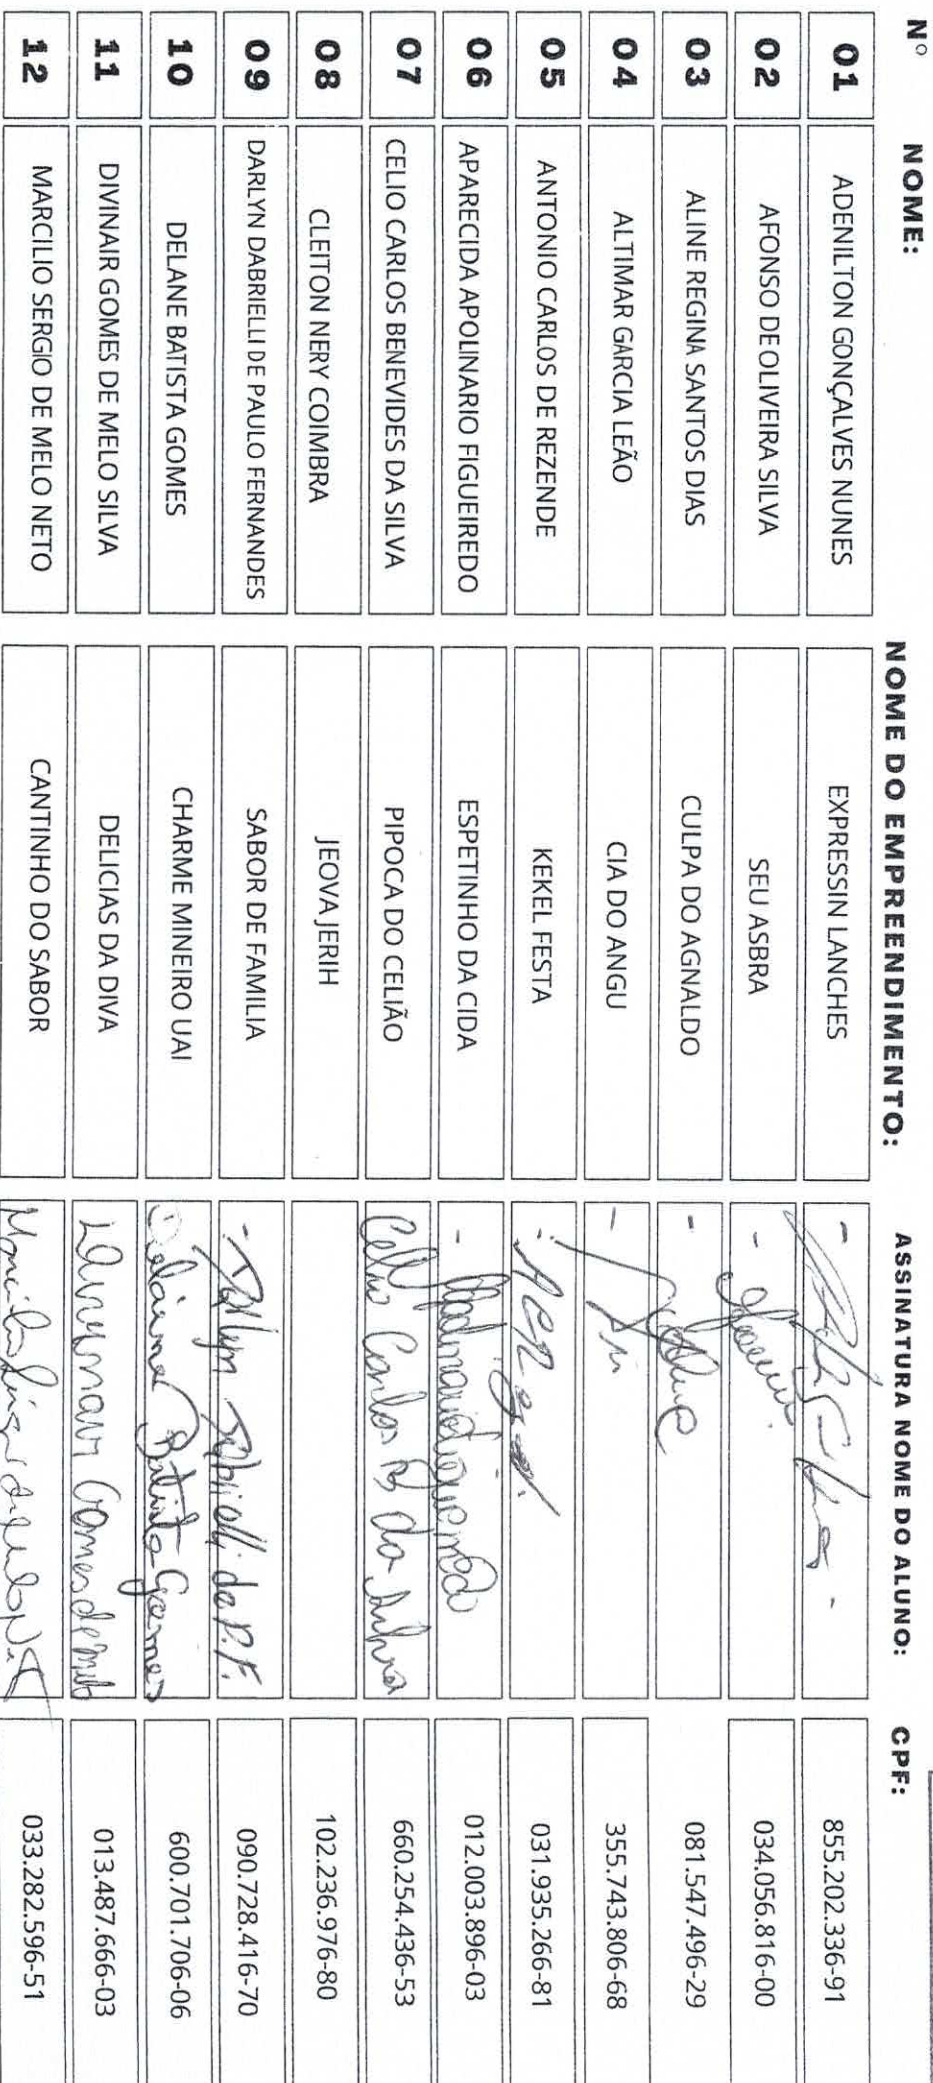 Nº NOME: NOME DO EMPREENDIMENTO: ASSINATURA NOME DO ALUNO: CPF:
01 ADENILTON GONÇALVES NUNES EXPRESSIN LANCHES 855.202.336-91
02 AFONSO DE OLIVEIRA SILVA SEU ASBRA 034.056.816-00
03 ALINE REGINA SANTOS DIAS CULPA DO AGNALDO 081.547.496-29
04 ALTIMAR GARCIA LEÃO CIA DO ANGU 355.743.806-68
05 ANTONIO CARLOS DE REZENDE KEKEL FESTA 031.935.266-81
06 APARECIDA APOLINARIO FIGUEIREDO ESPETINHO DA CIDA 012.003.896-03
07 CELIO CARLOS BENEVIDES DA SILVA PIPOCA DO CELIÃO Celio Carlos B da Silva 660.254.436-53
08 CLEITON NERY COIMBRA JEOVA JERIH 102.236.976-80
09 DARLYN DABRIELLI DE PAULO FERNANDES SABOR DE FAMILIA Darlyn Dabrielli de P. F. 090.728.416-70
10 DELANE BATISTA GOMES CHARME MINEIRO UAI Batista Gomes 600.701.706-06
11 DIVINAIR GOMES DE MELO SILVA DELICIAS DA DIVA Gomes de 013.487.666-03
12 MARCILIO SERGIO DE MELO NETO CANTINHO DO SABOR 033.282.596-51